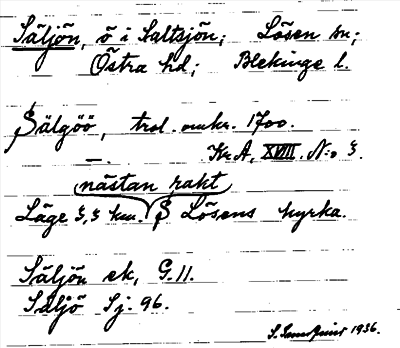 Säljön, ö i Saltsjön; Lösen sn;
Östra hd; Blekinge l.
Sälgöö, trol. omkr. 1700.
—. Kr. A, XVIII. N:o 3.
nästan rakt
Läge 3,3 km. S Lösens kyrka.
Säljön ek, G. 11.
Säljö Sj. 96.
1936.